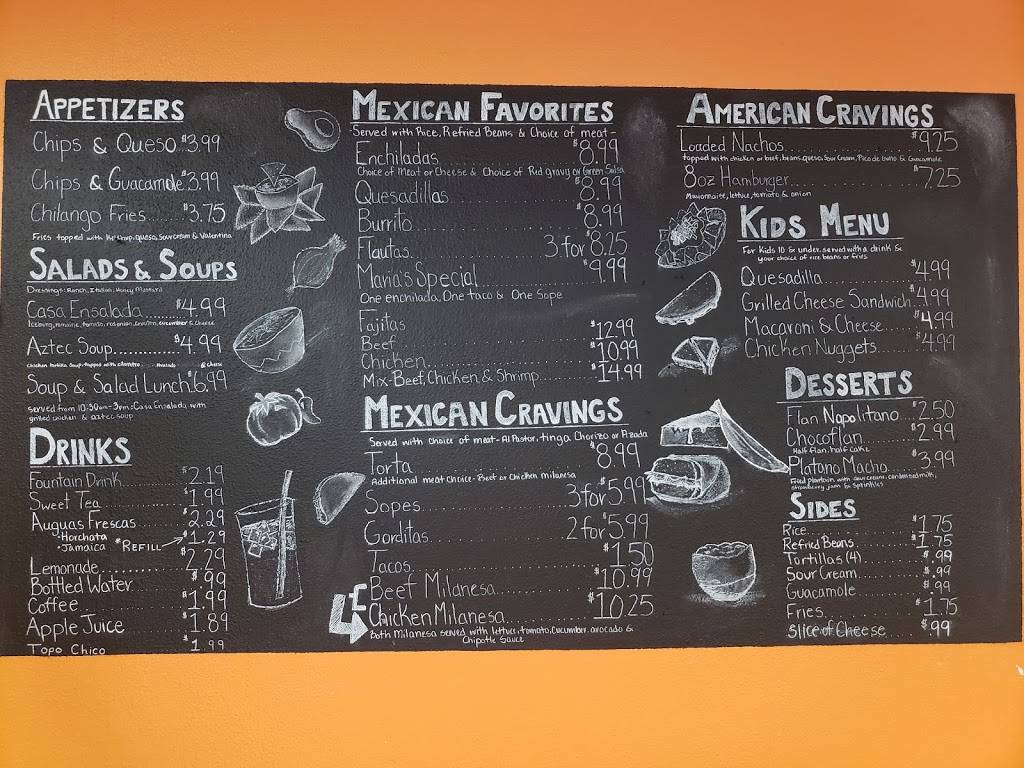 APPETIZERS
Chips & Queso..$3.99
Chips & Guacamole.$3.99
Chilango Fries......$3.75
Fries topped with Ketchup, queso, Sour cream & Valentina
SALADS & SOUPS
Dressings: Ranch, Italian, Honey Mustard
Casa Ensalada......$4.99
Iceburg, romaine, tomato, red onion, crouton, cucumber & Cheese
Aztec Soup..........$4.99
Chicken tortilla Soup topped with cilantro Avocado & Cheese
Soup & Salad Lunch.$6.99
served from 10:30am-3pm: Casa Ensalada with
grilled chicken & aztec soup
DRINKS
Fountain Drink........$2.19
Sweet Tea..........$1.99
Auguas Frescas......$2.29
·Horchata $1.29
·Jamaica *REFILL
Lemonade............$2.29
Bottled Water.......$.99
Coffee..............$1.99
Apple Juice........$1.89
Topo Chico $1.99
MEXICAN FAVORITES
-Served with Rice, Refried Beans & Choice of meat-
Enchiladas..............$8.99
Choice of Meat or Cheese & Choice of Red gravy or Green Salsa
Quesadillas.............$8.99
Burrito.................$8.99
Flautas............3 for $8.25
Maria's Special.........$9.99
One enchilada, One taco & One Sope
Fajitas
Beef....................$12.99
Chicken.................$10.99
Mix-Beef, Chicken, & Shrimp.....$14.99
MEXICAN CRAVINGS
Served with Choice of meat- Al Pastor, tinga, Chorizo or Asada
Torta...................$8.99
Additional meat Choice- Beef or Chicken milanesa
Sopes..............3 for $5.99
Gorditas...........2 for $5.99
Tacos...................$1.50
Beef Milanesa...........$10.99
Chicken Milanesa........$10.25
Both Milanesa served with lettuce, tomato, Cucumber, avocado &
Chipotle Sauce
AMERICAN CRAVINGS
Loaded Nachos...............$9.25
topped with chicken or beef, beans, queso, Sour Cream, Pico de Gallo & Guacamole
8oz Hamburger...............$7.25
Mayonnaise, lettuce, tomato & onion
KIDS MENU
For Kids 10 & under. served with a drink &
your choice of rice beans or fries
Quesadilla..........$4.99
Grilled Cheese Sandwich.$4.99
Macaroni & Cheese....$4.99
Chicken Nuggets.....$4.99
DESSERTS
Flan Napolitano...$2.50
Chocoflan.........$2.99
Half flan, half cake
Platano Macho.....$3.99
Fried plantain with sour cream, condensed milk,
strawberry jam & Sprinkles
SIDES
Rice................$1.75
Refried Beans.......$1.75
Tortillas (4).......$.99
Sour Cream..........$.99
Guacamole...........$.99
Fries...............$1.75
Slice of Cheese.....$.99